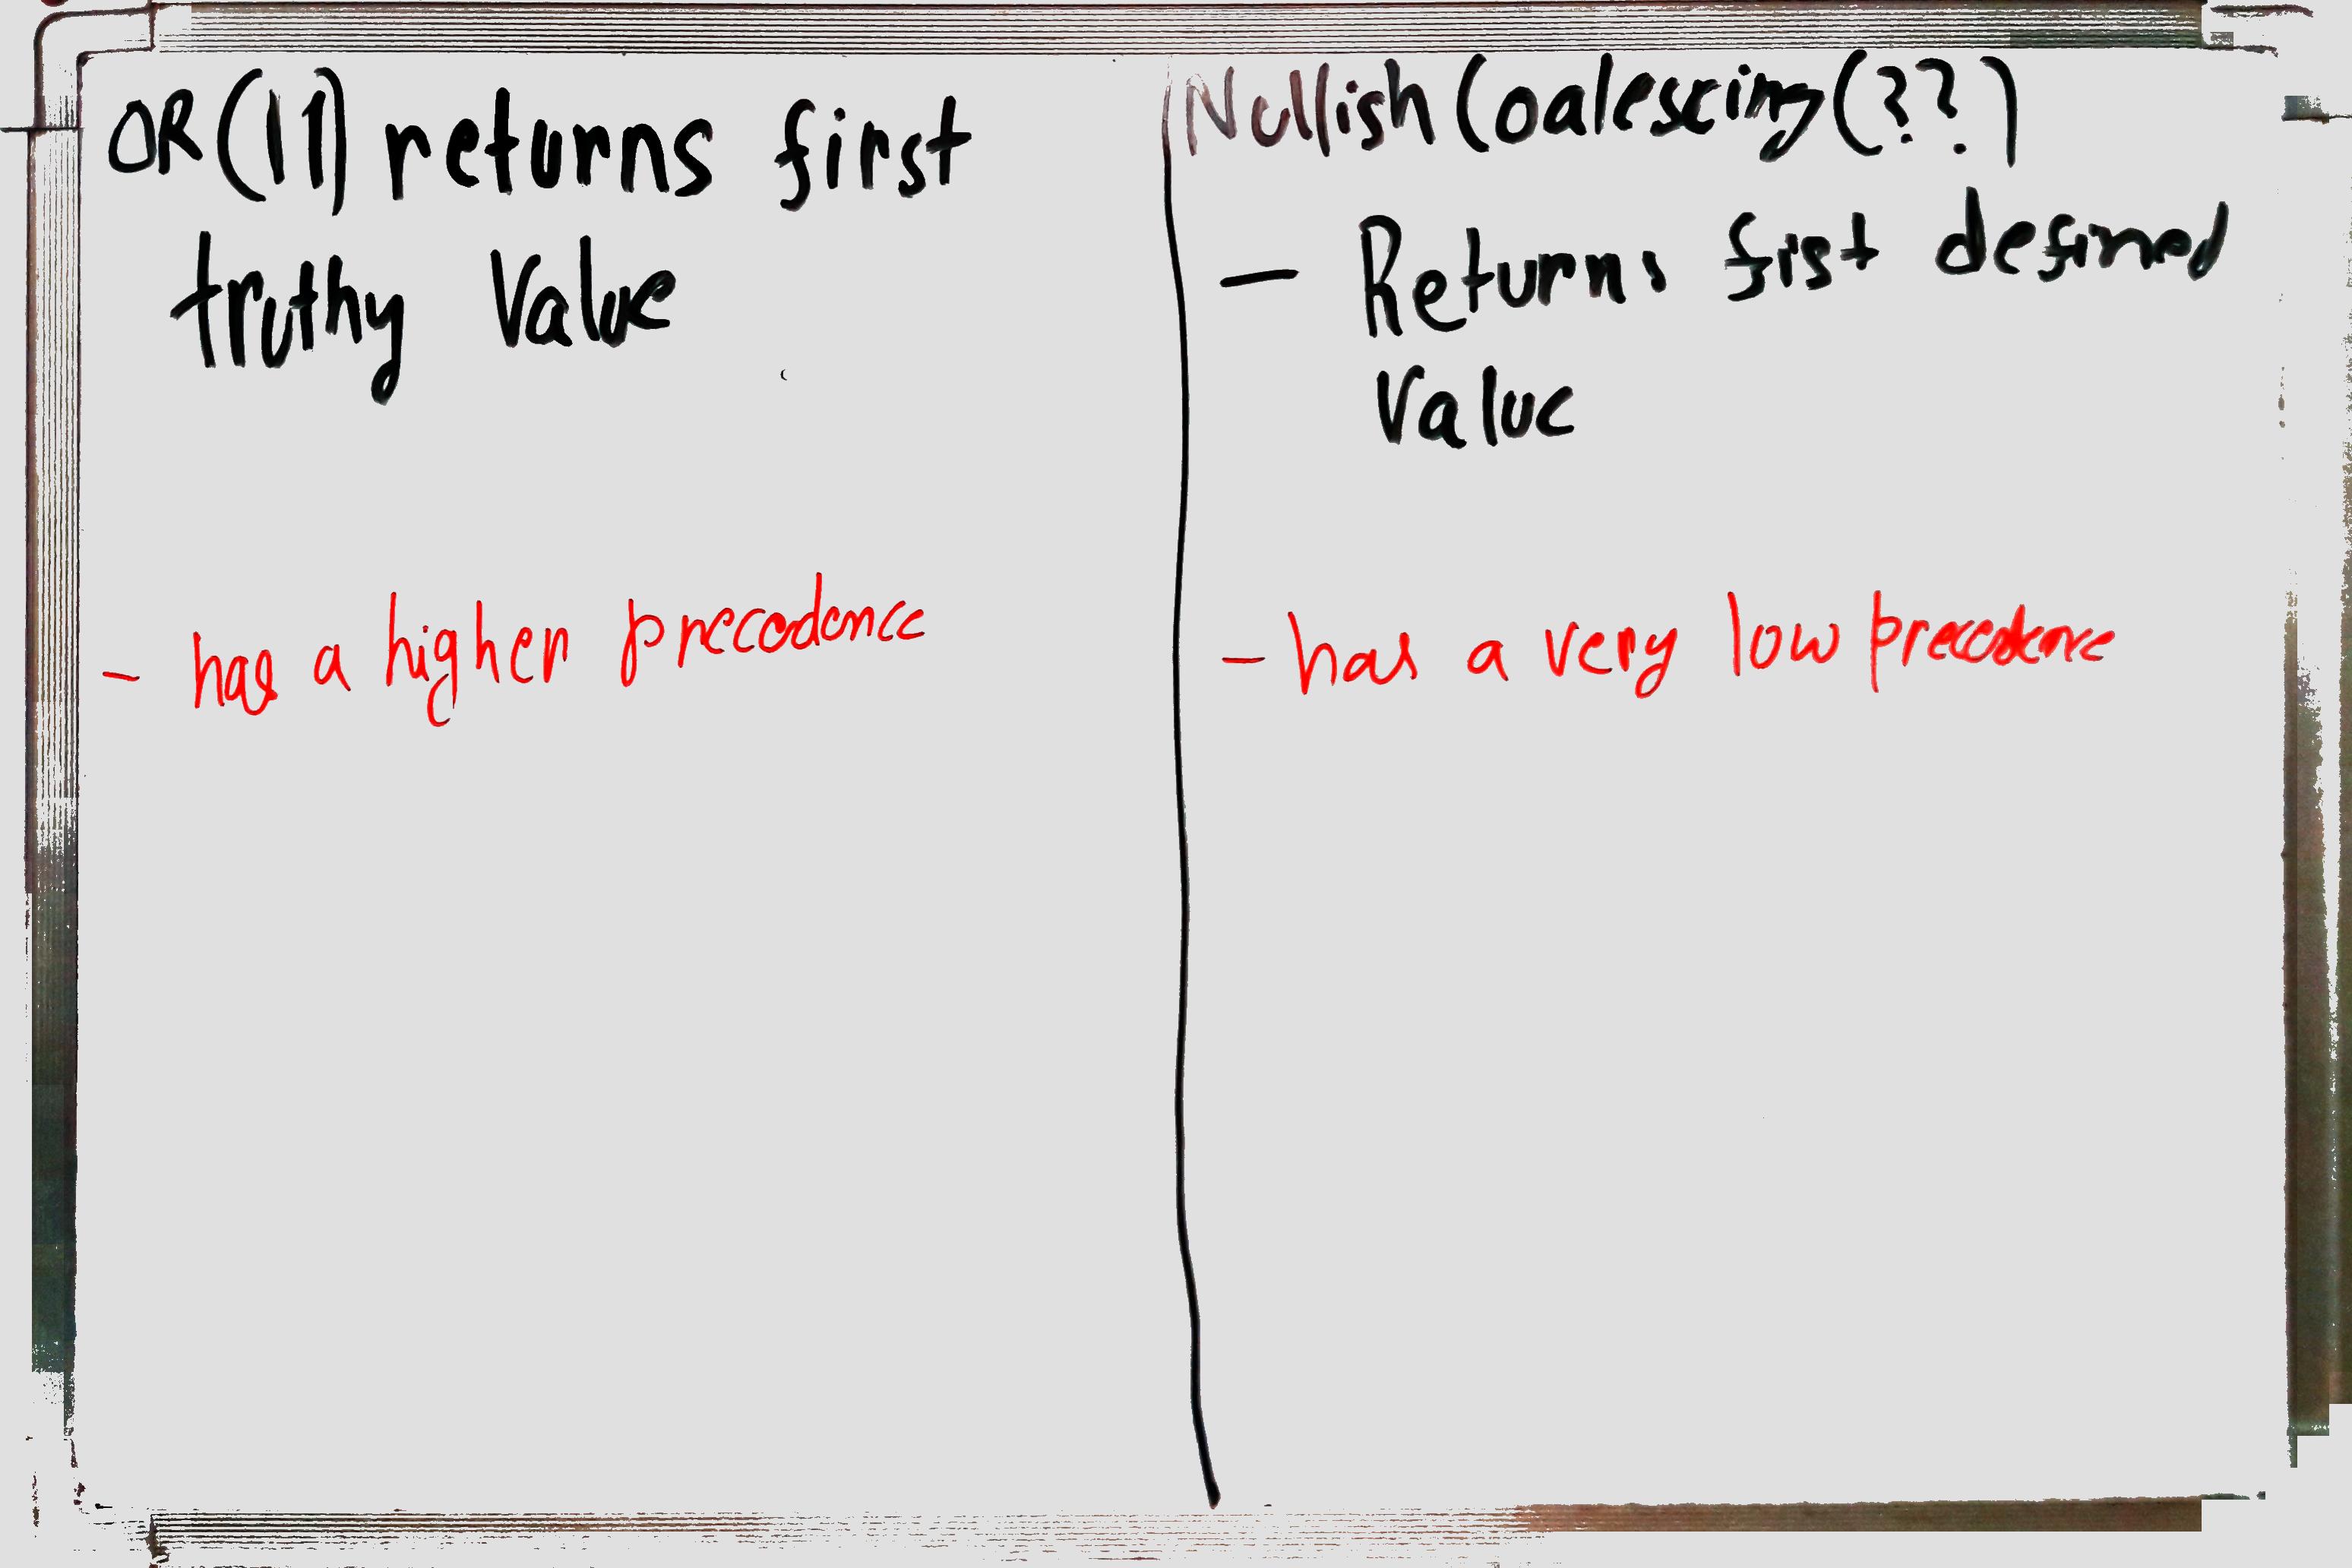 OR (||) returns first
truthy Value
- has a higher precedence
Nullish Coalescing (??)
- Returns fist defined
Value
- has a very low precedence